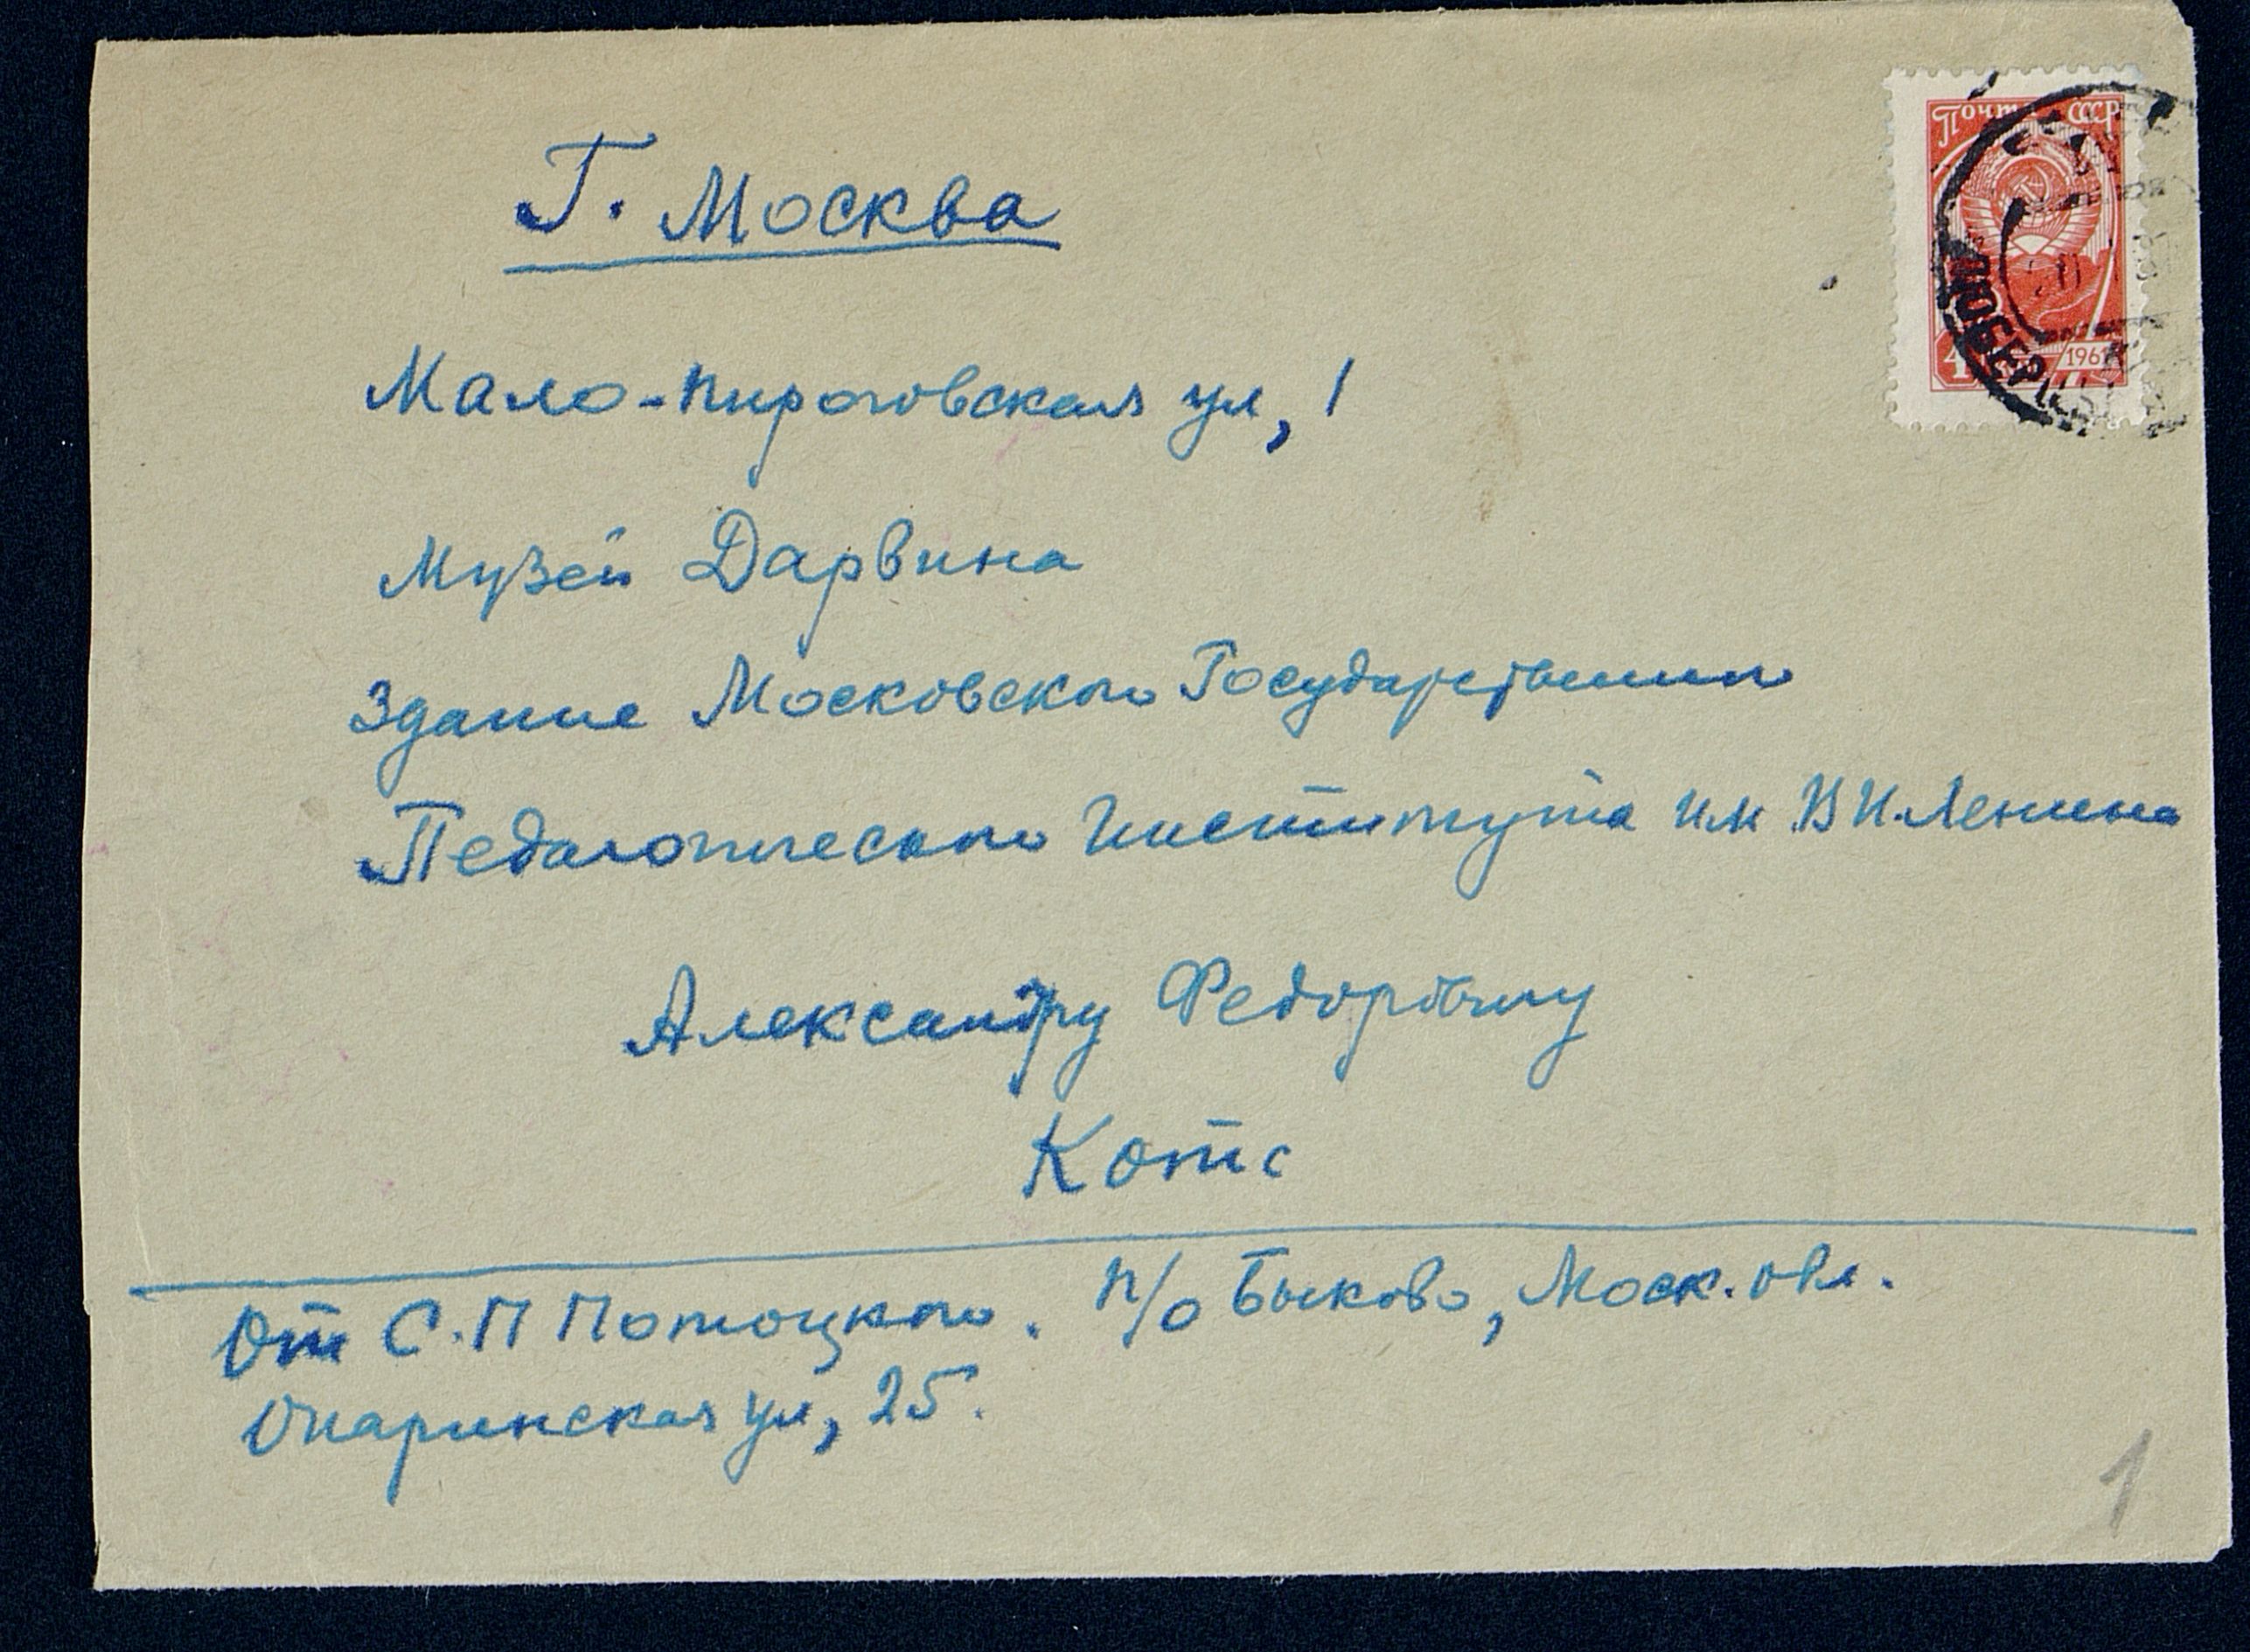 Почта СССР
1961
ЛЮБЕРЦЫ
Г. Москва
Мало-Пироговская ул, 1
Музей Дарвина
Здание Московского Государственного
Педагогического Института им. В И. Ленина
Александру Федоровичу
Котс
От С. П Потоцкого. п/о Быково, Моск. обл.
Опаринская ул, 25.
1